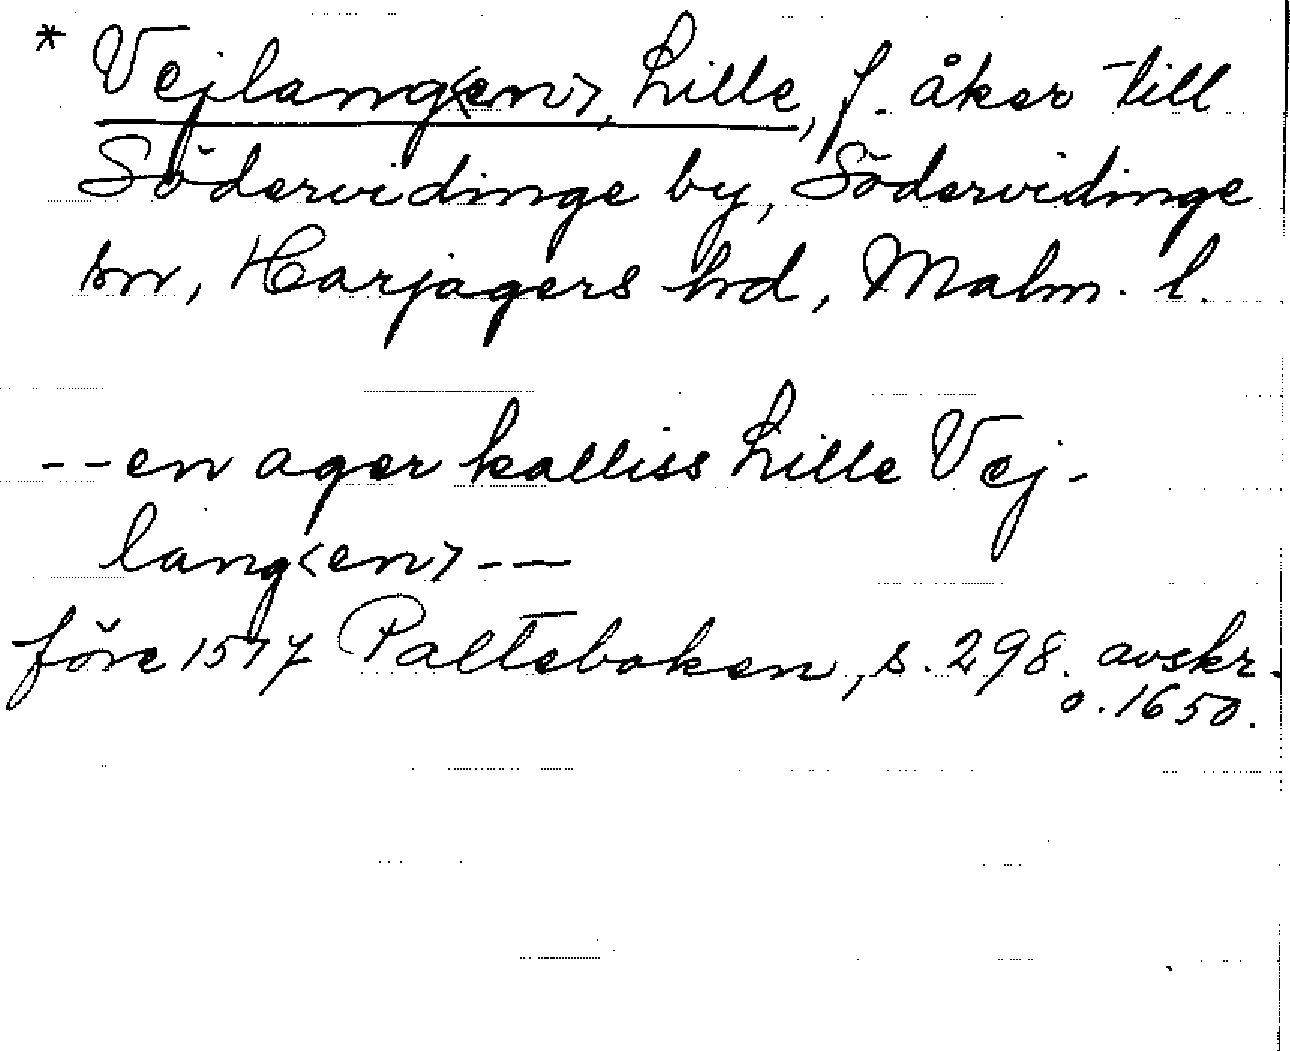 * Vejlang<en>, Lille, f. åker till
Södervidinge by, Södervidinge
sn, Harjagers hd, Malm. l.
--en ager kalliss Lille Vej-
lang<en> --
före 1517 Palteboken, s. 298. avskr.
o. 1650.